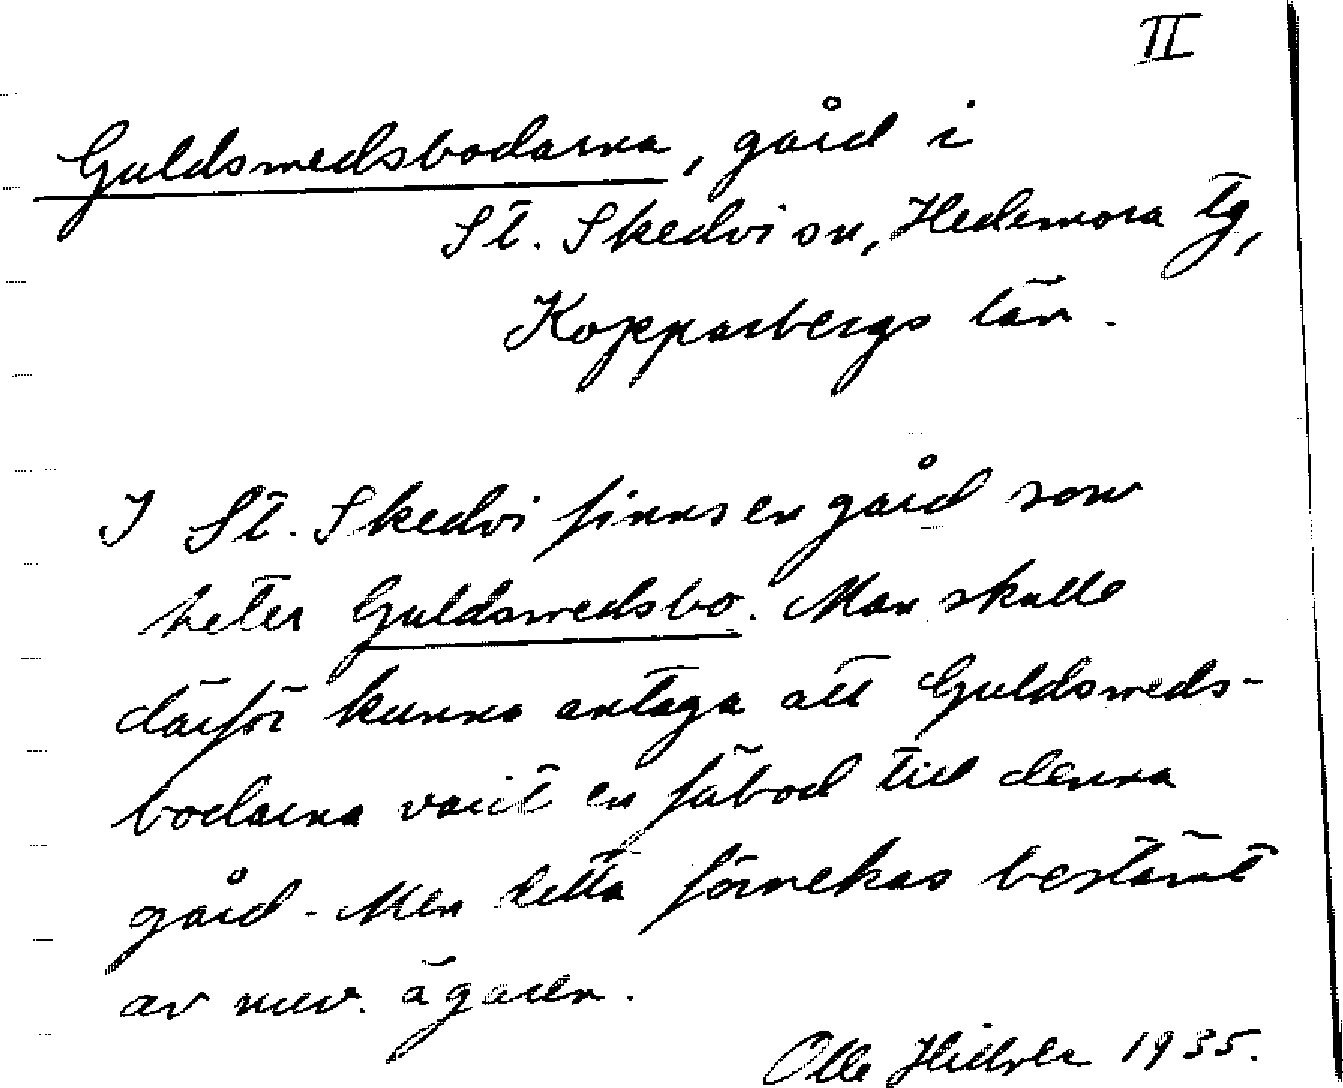 II
Guldsmedsbodarna, gård i
St. Skedvi sn, Hedemora tg,
Kopparbergs län.
I St. Skedvi finns en gård som
heter Guldsmedsbo. Man skulle
därför kunna antaga att Guldsmeds-
bodarna varit en fäbod till denna
gård. Men detta förnekas bestämt
av nuv. ägaren.
Olle 1935.